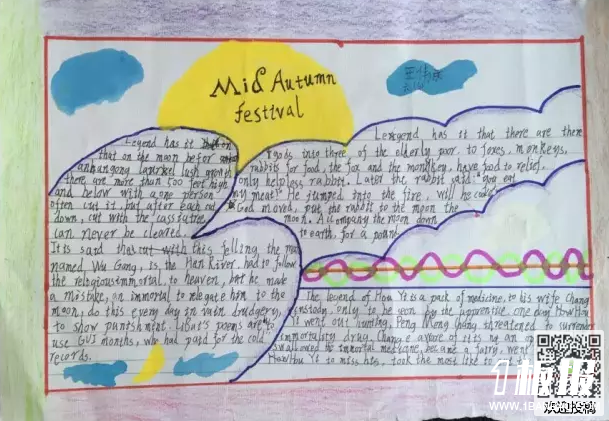 Mid Autumn
festival
Legend has it
that on the moon befor
lush growth
there are more than 500 feet high
and below with a one person
often cut it, but after each cut
down, cut with the cassia tree
can never be cleated.
It is said that cut with this felling the man
named Wu Gang, is the Han River had to follow
the religious immortal, to heaven, but he made
a mistake, an immortal to relegate him to the
moon, do this every day in vain drudgery,
to show punishment. Libai's poems are to
use GUI months, who had paid for the cold
records.
Legend has it that there are three
gods into three of the elderly poor, to foxes, monkeys,
rabbits for food, the fox and the monkey, have food to relief,
only helpless rabbit. Later the rabbit said: you eat
my meat! He jumped into the fire, will he cooked
God moved, put the rabbit to the moon the
moon, accompany the moon down
to earth, for a
The legend of Hou Yi is a pack of medicine, to his wife Chang
custody, only to be
Yi went out hunting, Peng Meng threatened to surrender
immortality drug, Chang e
swallowed the immortal medicine, became a fairy, went
Hou Yi to miss his, took the most like to eat
i板报